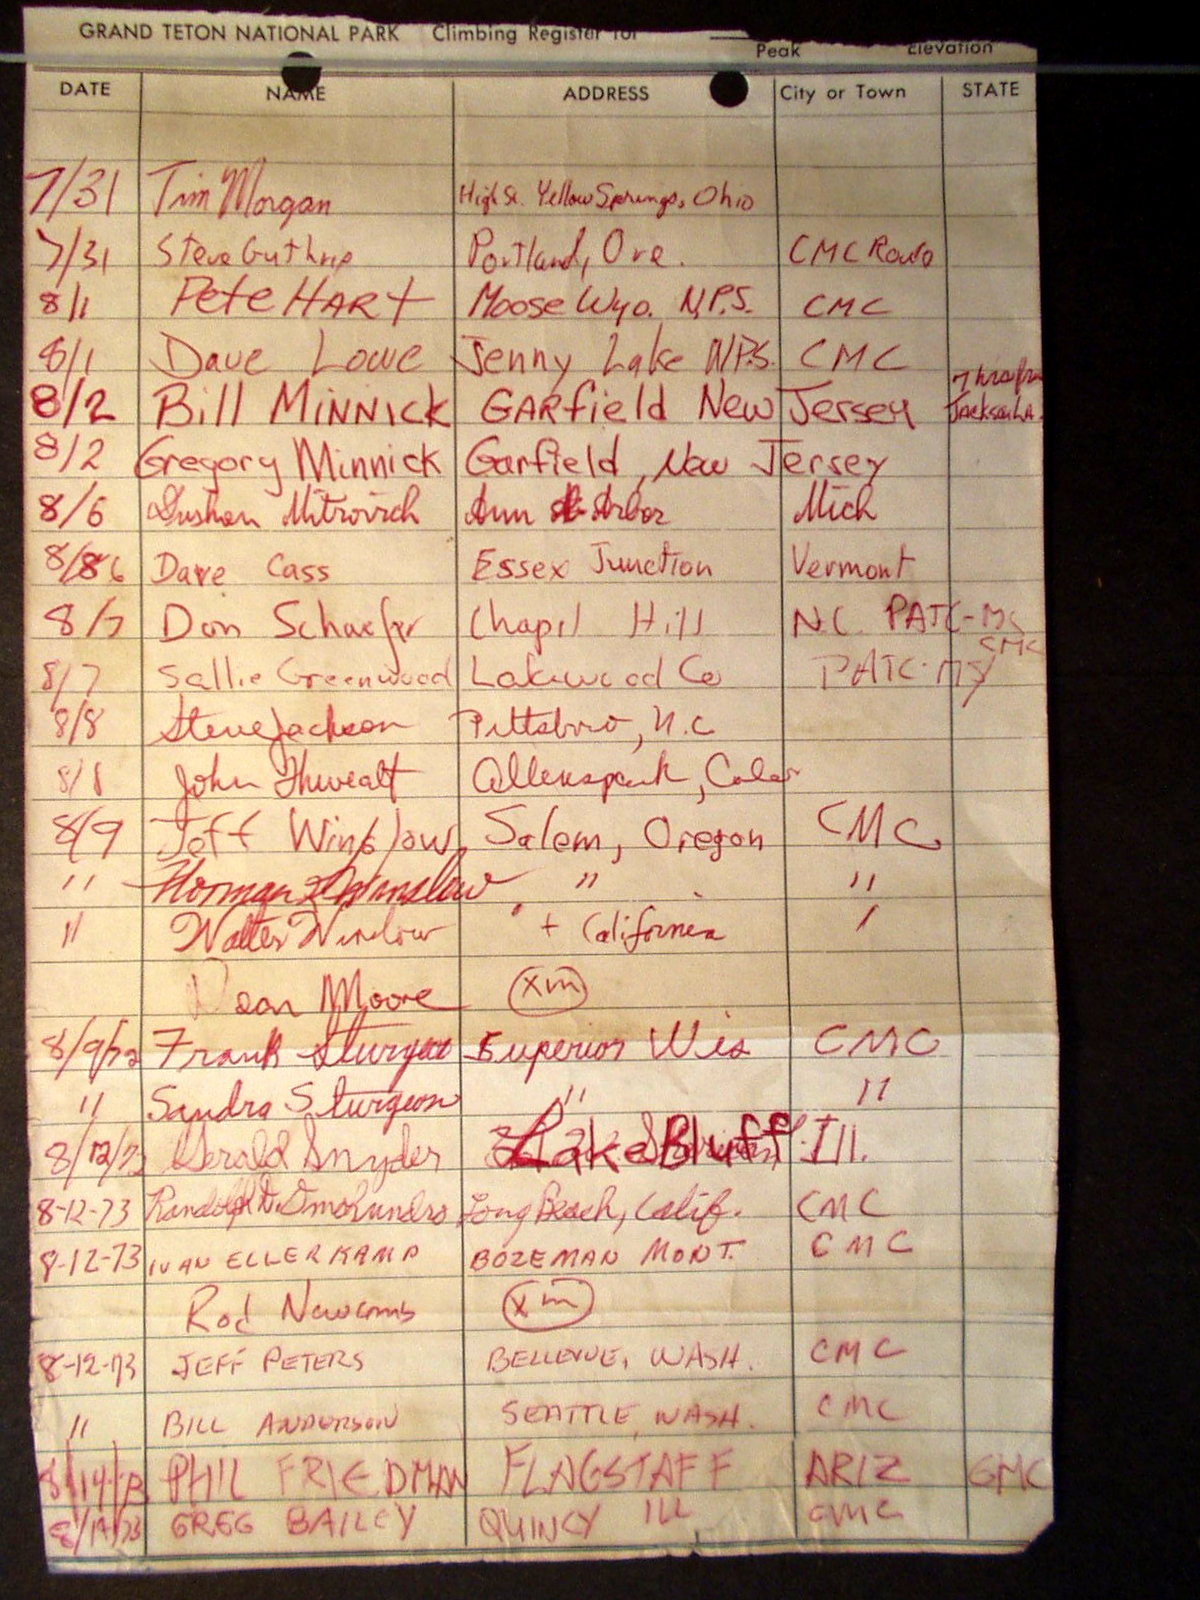 GRAND TETON NATIONAL PARK Climbing Register for Peak Elevation
DATE NAME ADDRESS City or Town STATE
7/31 Tim Morgan High St. Yellow Springs, Ohio
7/31 Steve Guthrie Portland, Ore. CMC Route
8/1 Pete HART Moose Wyo. N.P.S. CMC
8/1 Dave Lowe Jenny Lake N.P.S. CMC
8/2 Bill MINNICK GARfield New Jersey 7 hrs from Jackson Lk.
8/2 Gregory Minnick Garfield, New Jersey
8/6 Dushan Mitrovich Ann Arbor Mich
8/86 Dave Cass Essex Junction Vermont
8/7 Don Schaefer Chapel Hill N.C. PATC-MS CMC
8/7 Sallie Greenwood Lakewood Co PATC-MS
8/8 Steve Jackson Pittsboro, N.C
8/8 John Allenspark, Color
8/9 Jeff Winslow Salem, Oregon CMC
" Norman Winslow " "
" Walter Winslow " + California "
Dean Moore xm
8/9/72 Frank Sturgeon Superior Wis CMC
" Sandra Sturgeon " "
8/12/73 Gerald Snyder Lake Bluff Ill.
8-12-73 Randolph Omohundro Long Beach, Calif. CMC
8-12-73 IVAN ELLERKAMP BOZEMAN MONT. CMC
Rod Newcomb xm
8-12-73 JEFF PETERS BELLEVUE, WASH. CMC
" BILL ANDERSON SEATTLE, WASH. CMC
8/14/73 PHIL FRIEDMAN FLAGSTAFF ARIZ CMC
8/14/73 GREG BAILEY QUINCY ILL CMC